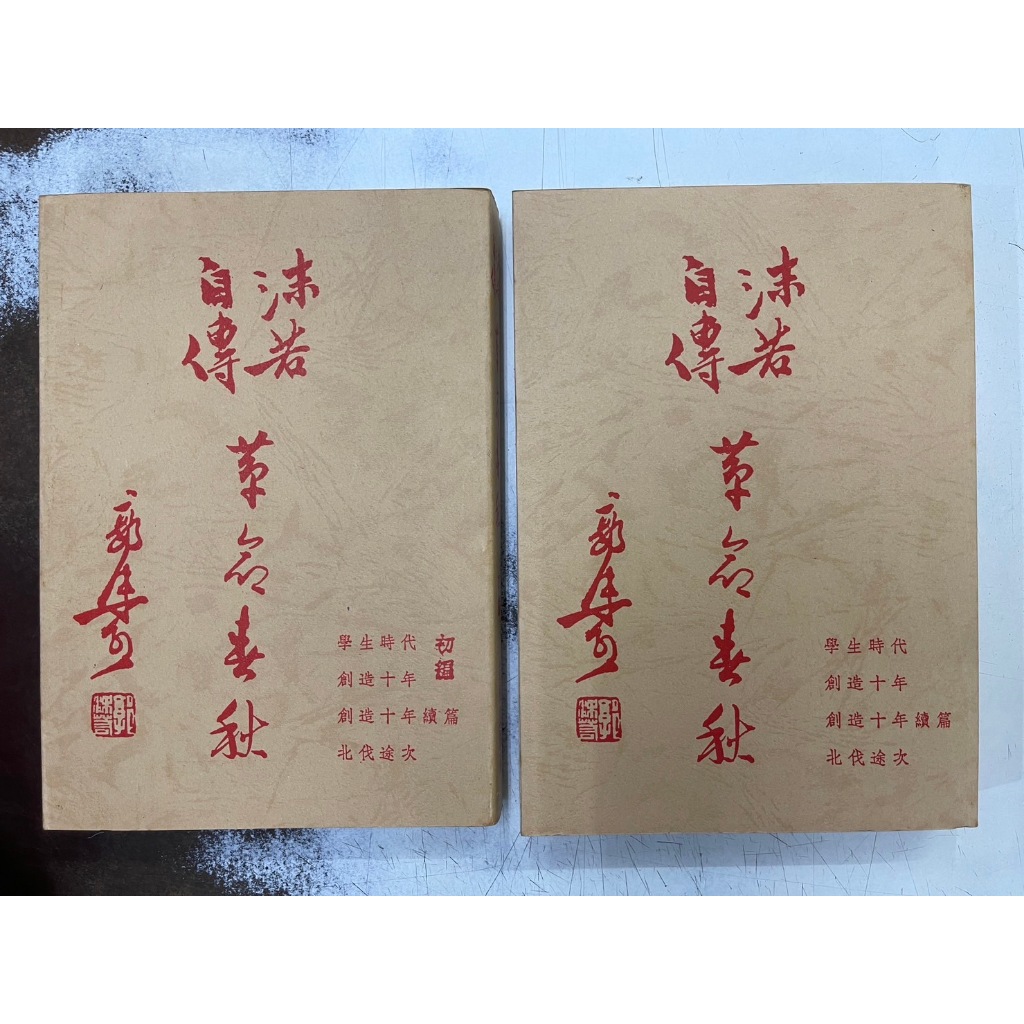 沫若
自傳
革命春秋
學生時代
創造十年
創造十年續篇
北伐途次
初
沫若
自傳
革命春秋
學生時代
創造十年
創造十年續篇
北伐途次